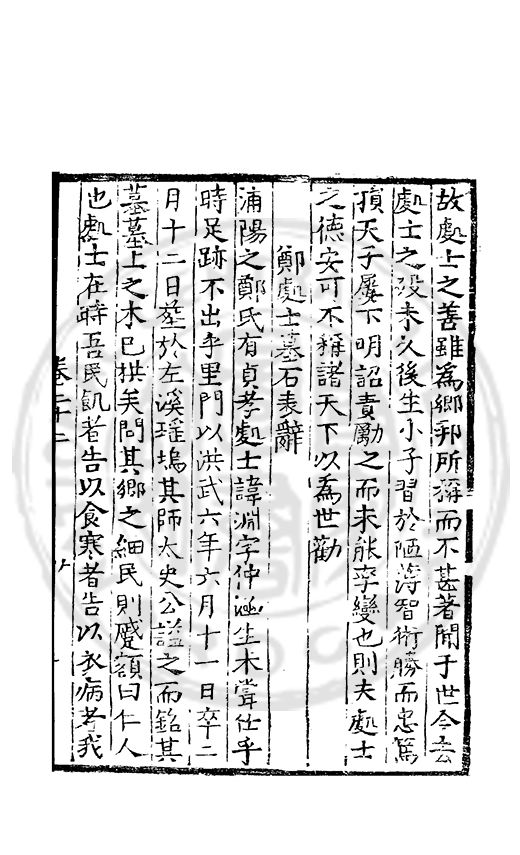 故處上之善雖爲鄉邦所稱而不甚著聞于世今去
處士之沒未久後生小子習於陋薄智術勝而忠篤
損天子屢下明詔責勵之而未能率變也則夫處士
之德安可不稱諸天下以爲世勸
鄭處士墓石表辭
浦陽之鄭氏有貞孝處士諱淵字仲涵生未嘗仕乎
時足跡不出乎里門以洪武六年六月十一日卒二
月十二日塟於左溪瑤塢其師太史公謚之而銘其
墓墓上之木巳拱矣問其鄉之細民則蹙額曰仁人
也處士在時吾民飢者告以食寒者告以衣病者我
卷二十二